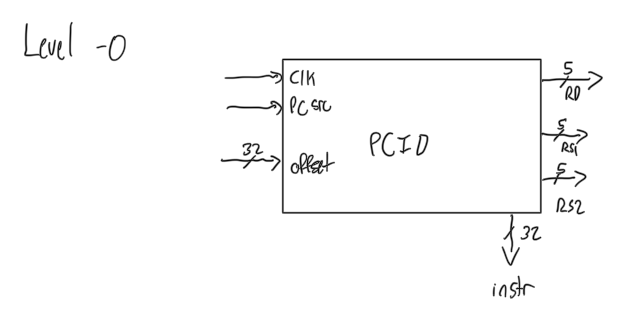 Level -0
Clk
PC src
32
offset
PCID
5
RD
5
RS1
5
RS2
32
instr